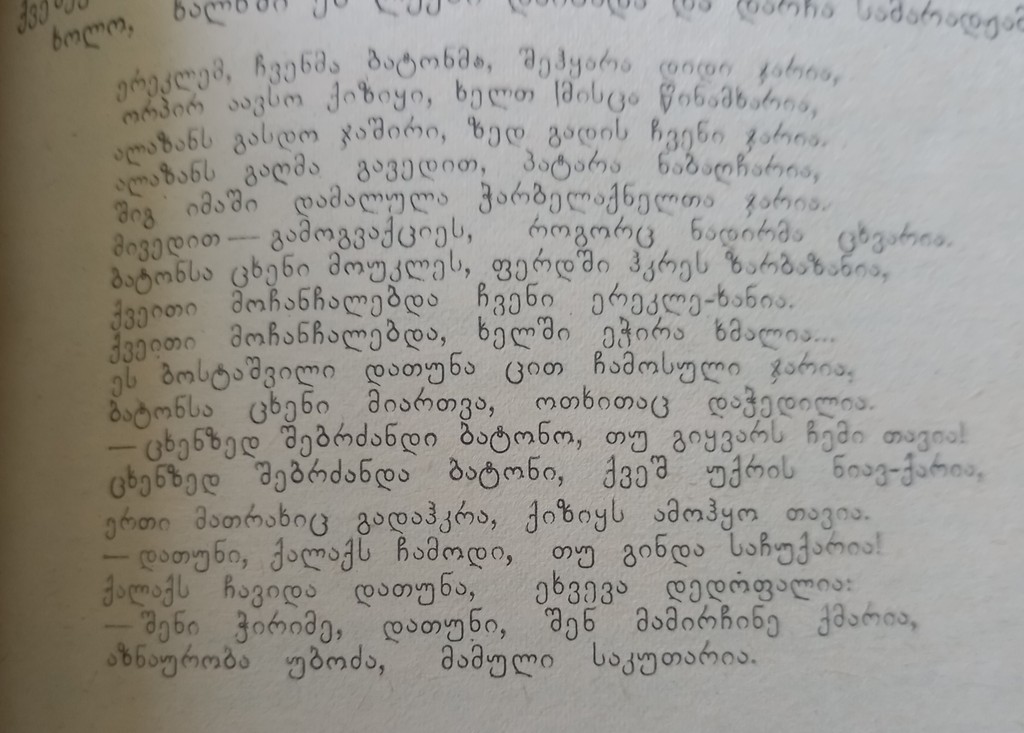 ხოლო,
ერეკლემ, ჩვენმა ბატონმა, შეჰყარა დიდი ჯარია,
ორპირ აავსო ქიზიყი, ხელთ მისცა წინამხარია,
ალაზანს გასდო ჯაშირი, ზედ გადის ჩვენი ჯარია.
ალაზანს გაღმა გავედით, პატარა ნაბაღჩარია,
შიგ იმაში დამალულა ჭარბელაქნელთა ჯარია.
მივედით — გამოგვაქციეს, როგორც ნადირმა ცხვარია.
ბატონსა ცხენი მოუკლეს, ფერდში ჰკრეს ზარბაზანია,
ქვეითი მოჩანჩალებდა ჩვენი ერეკლე-ხანია.
ქვეითი მოჩანჩალებდა, ხელში ეჭირა ხმალია...
ეს ბოსტაშვილი დათუნა ცით ჩამოსული ჯარია,
ბატონსა ცხენი მიართვა, ოთხითაც დაჭედილია.
— ცხენზედ შებრძანდი ბატონო, თუ გიყვარს ჩემი თავია!
ცხენზედ შებრძანდა ბატონი, ქვეშ უქრის ნიავ-ქარია,
ერთი მათრახიც გადაჰკრა, ქიზიყს ამოჰყო თავია.
— დათუნი, ქალაქს ჩამოდი, თუ გინდა საჩუქარია!
ქალაქს ჩავიდა დათუნა, ეხვევა დედოფალია:
— შენი ჭირიმე, დათუნი, შენ მამირჩინე ქმარია,
აზნაურობა უბოძა, მამული საკუთარია.